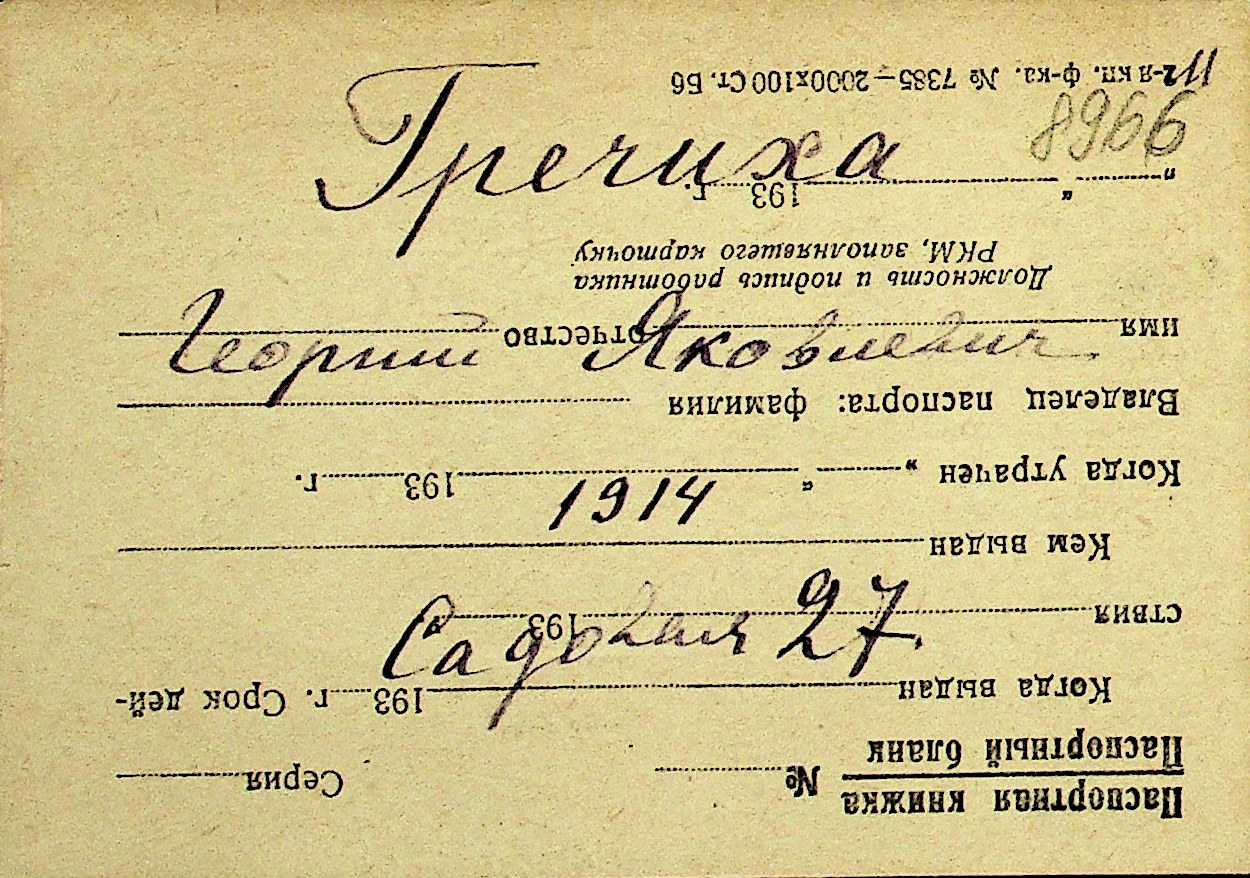 Гречиха
Георгий Яковлевич
1914
Садовая 27.
8966
11
Паспортная книжка
Паспортный бланк
№ Серия
Когда выдан 193 г. Срок дей-
ствия 193
Кем выдан
Когда утрачен „ “ 193 г.
Владелец паспорта: фамилия
имя отчество
Должность и подпись работника
РКМ, заполнявшего карточку
„ “ 193 г.
2-я кп. ф-ка. № 7385—2000х100 Ст. Б6